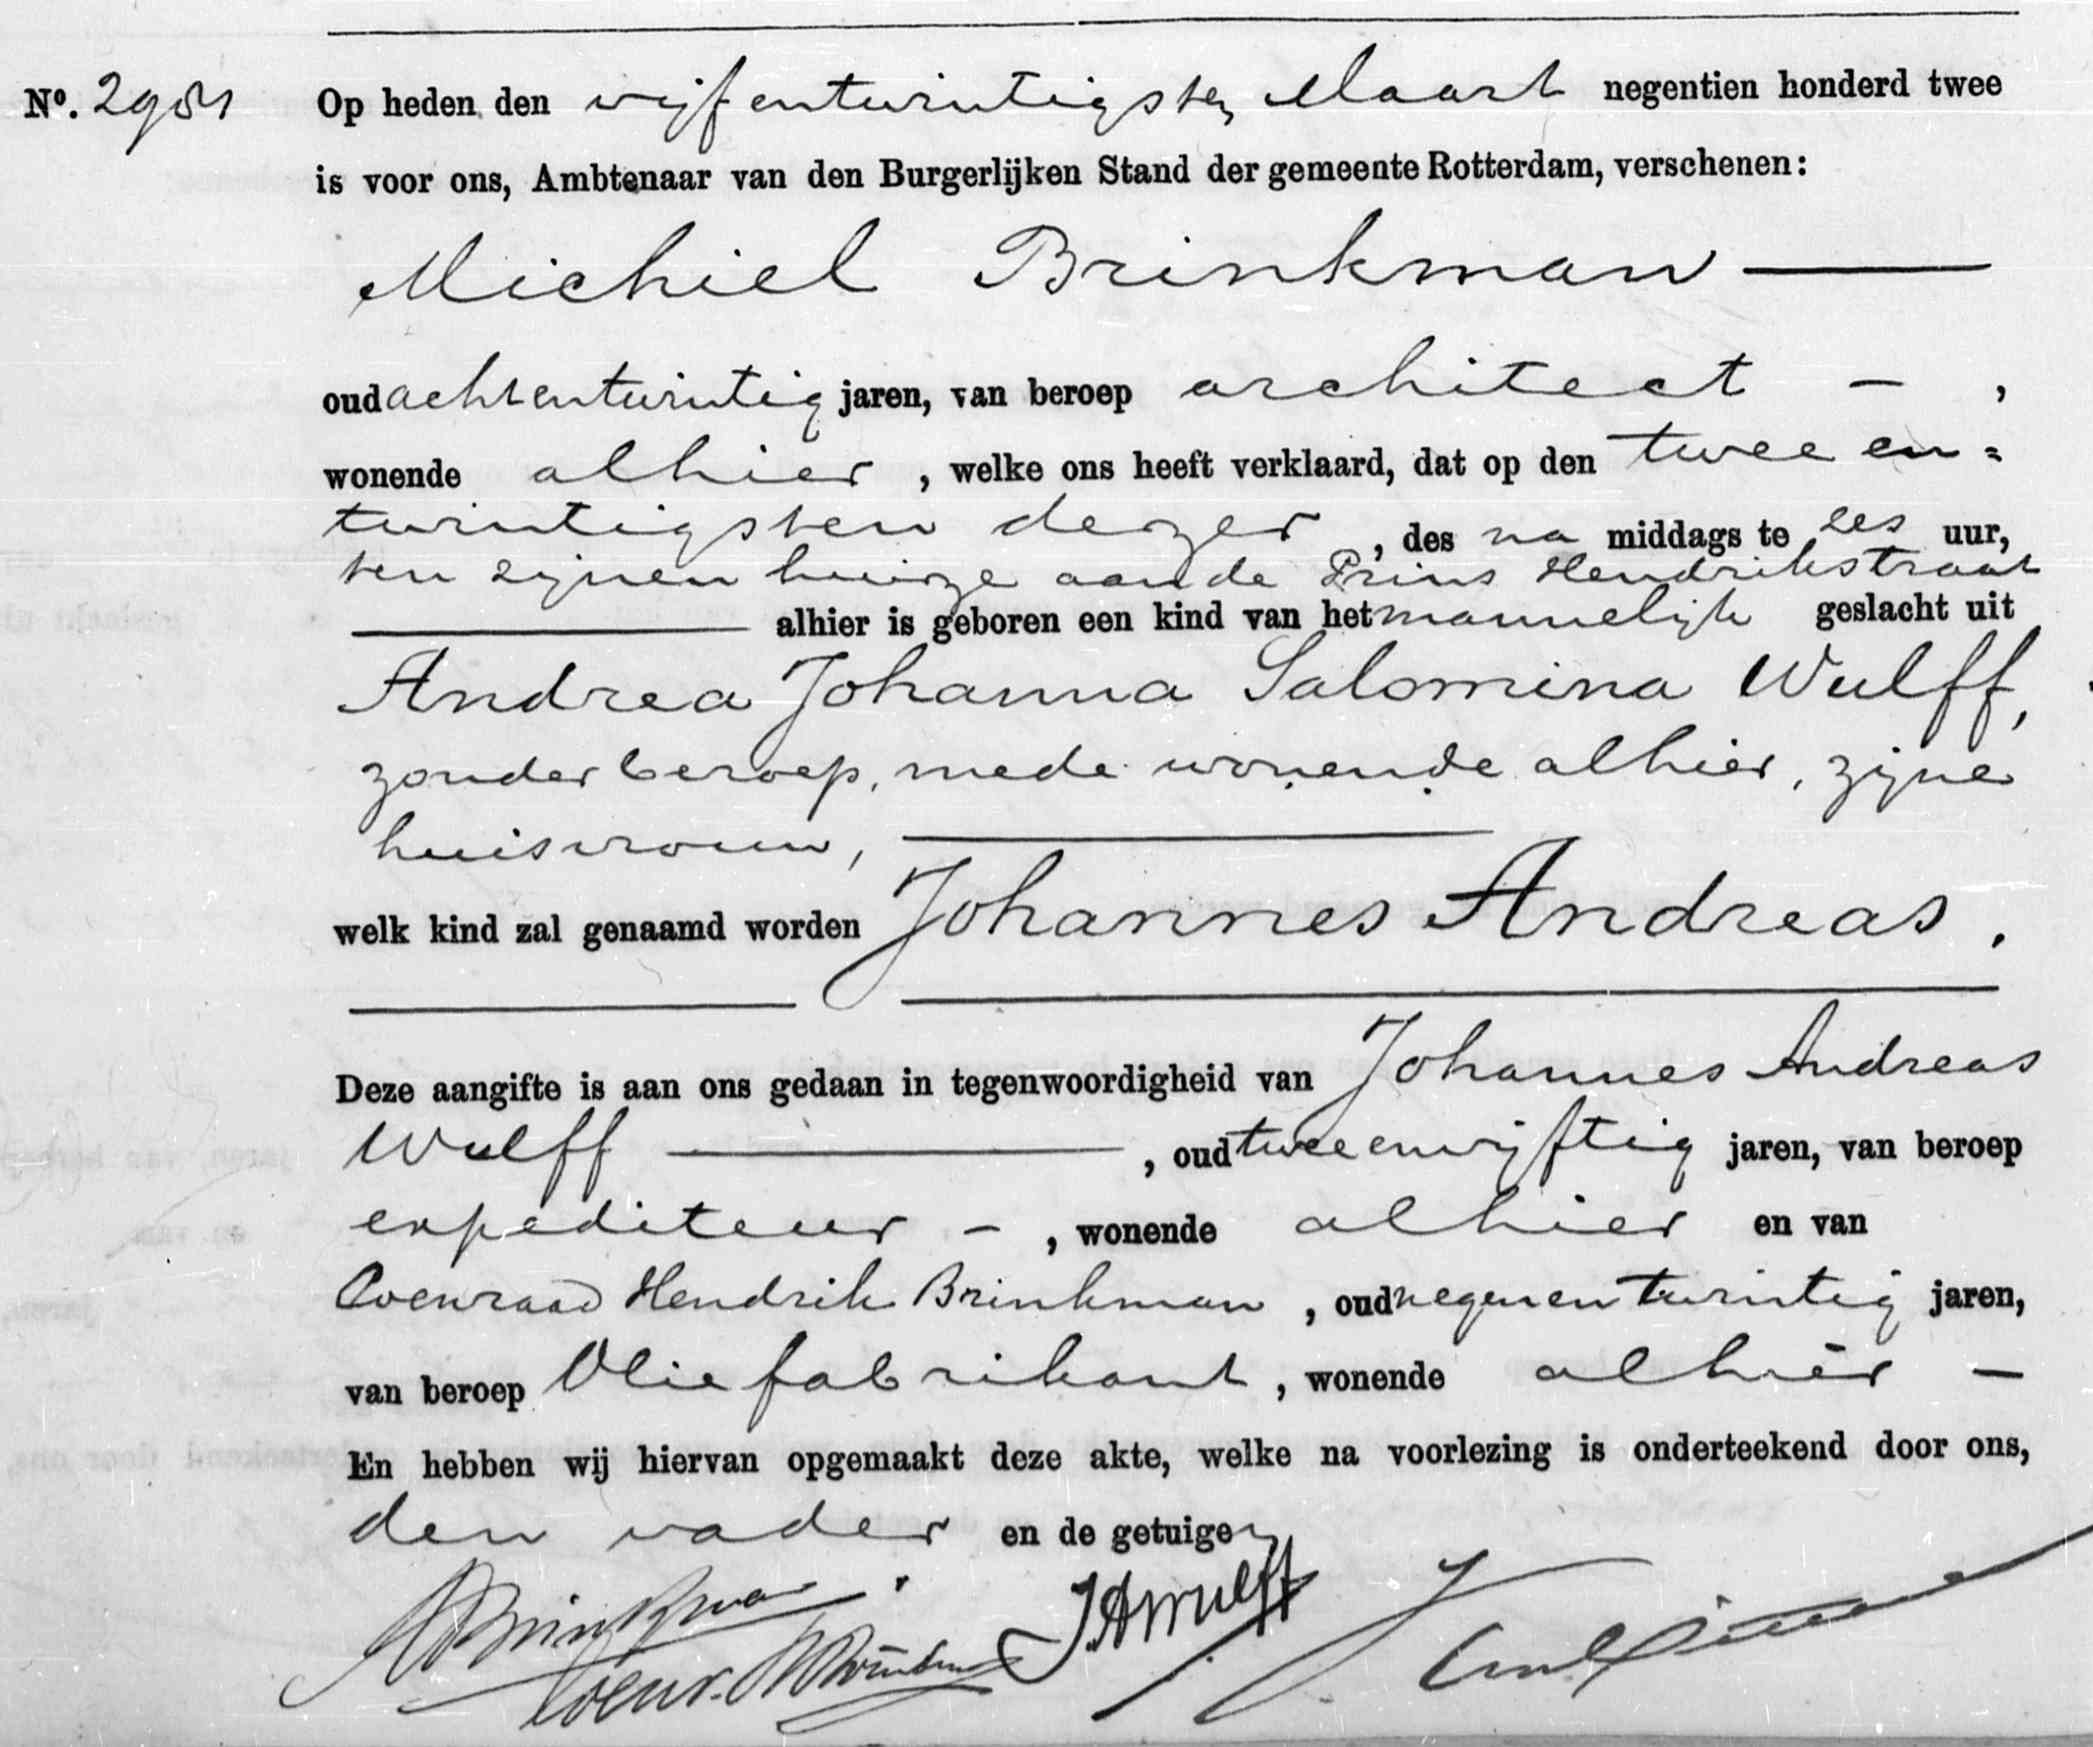 No. 2981 Op heden den vijfentwintigsten Maart negentien honderd twee
is voor ons, Ambtenaar van den Burgerlijken Stand der gemeente Rotterdam, verschenen:
Michiel Brinkman
oud achtentwintig jaren, van beroep architect - ,
wonende alhier , welke ons heeft verklaard, dat op den twee en=
twintigsten dezer , des na middags te zes uur,
ten zijnen huize aan de Prins Hendrikstraat
alhier is geboren een kind van het mannelijk geslacht uit
Andrea Johanna Salomina Wulff,
zonder beroep, mede wonende alhier, zijne
huisvrouw,
welk kind zal genaamd worden Johannes Andreas.
Deze aangifte is aan ons gedaan in tegenwoordigheid van Johannes Andreas
Wulff , oud tweeenvijftig jaren, van beroep
expediteur - , wonende alhier en van
Coenraad Hendrik Brinkman , oud negenentwintig jaren,
van beroep Oliefabrikant , wonende alhier -
En hebben wij hiervan opgemaakt deze akte, welke na voorlezing is onderteekend door ons,
den vader en de getuigen
MBrinkman. JAWulff
Coenr. HBrinkman